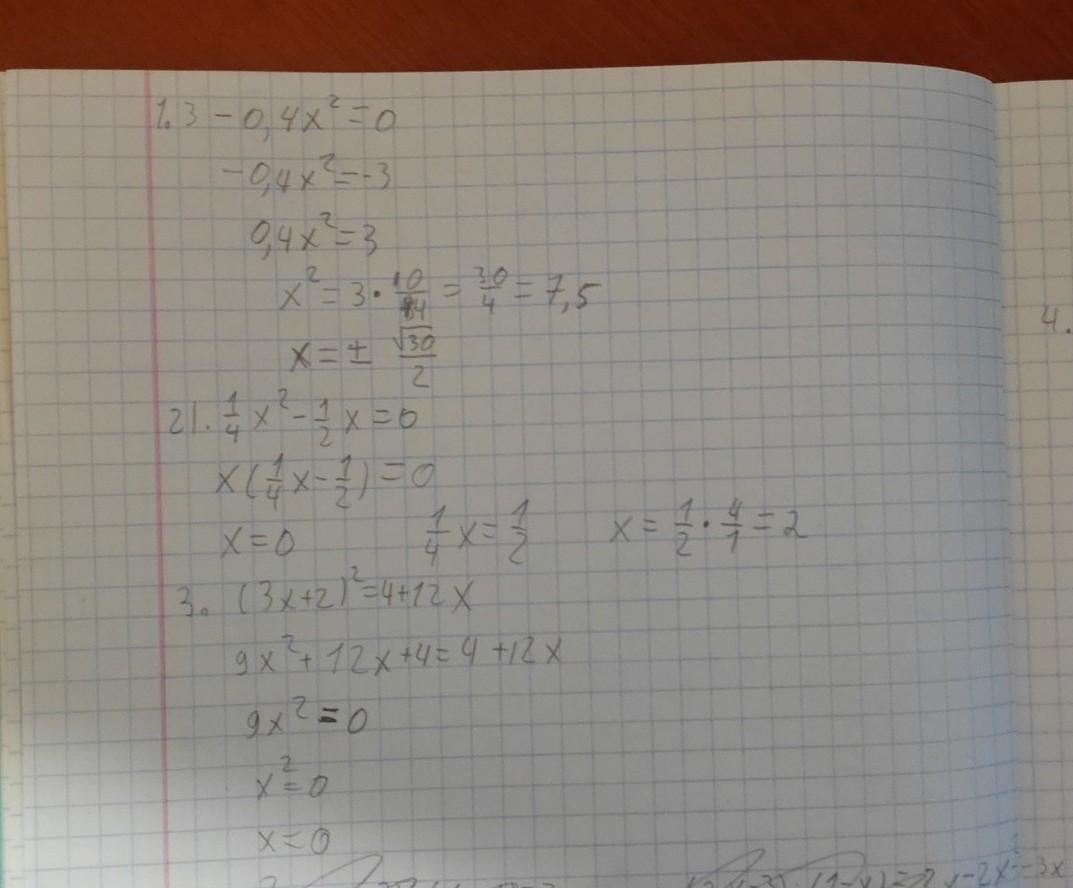 1. 3 - 0,4x² = 0
-0,4x² = -3
0,4x² = 3
x² = 3 · 10/4 = 30/4 = 7,5
x = ± √30/2
2. 1/4 x² - 1/2 x = 0
x(1/4 x - 1/2) = 0
x = 0 1/4 x = 1/2 x = 1/2 · 4/1 = 2
3. (3x+2)² = 4+12x
9x² + 12x + 4 = 4 + 12x
9x² = 0
x² = 0
x = 0
4.